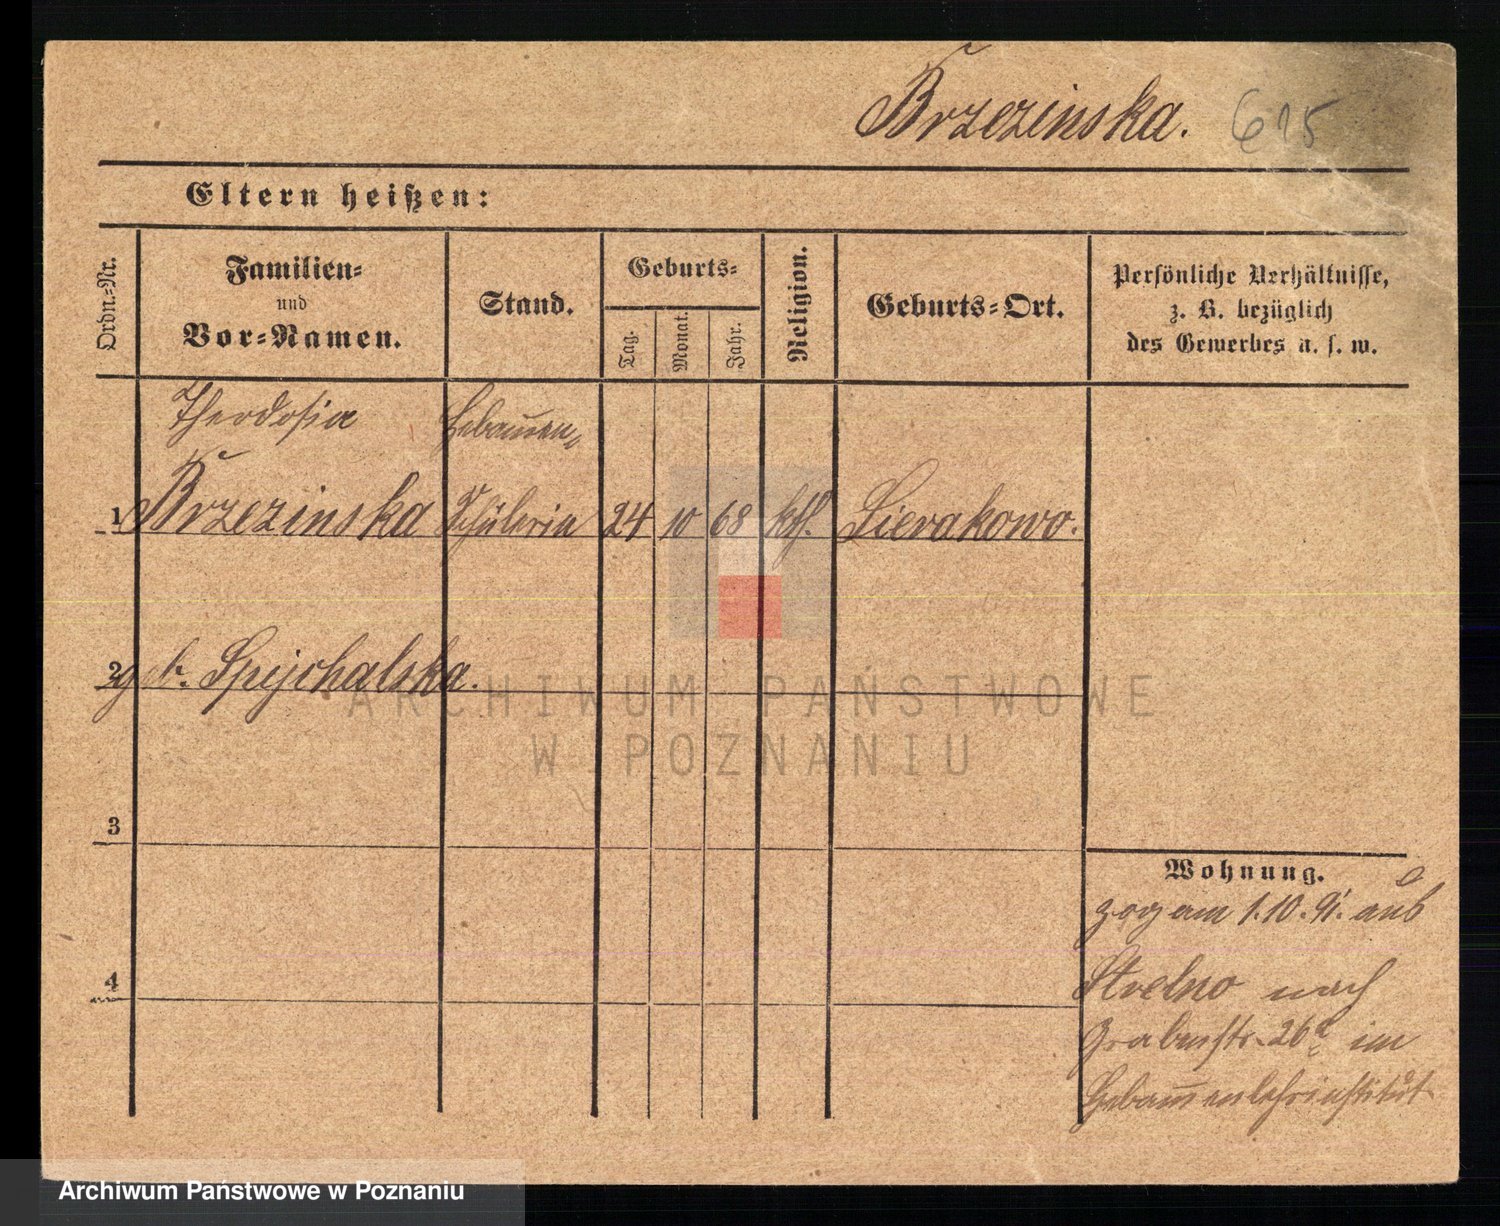 Brzezinska. 615
Eltern heißen:
Ordn.-Nr.
Familien-
und
Vor-Namen.
Stand.
Geburts-
Tag.
Monat.
Jahr.
Religion.
Geburts-Ort.
Persönliche Verhältnisse,
z. B. bezüglich
des Gewerbes u. s. w.
Theodosia Hebam̅en-
1 Brzezinska Schülerin 24 10 68 kth. Sierakowo.
2 geb. Spychalska.
ARCHIWUM PAŃSTWOWE
W POZNANIU
3
Wohnung.
zog am 1.10.91. aus
4
Strelno nach
Grabenstr. 26a im
Hebam̅enlehrinstitut
Archiwum Państwowe w Poznaniu